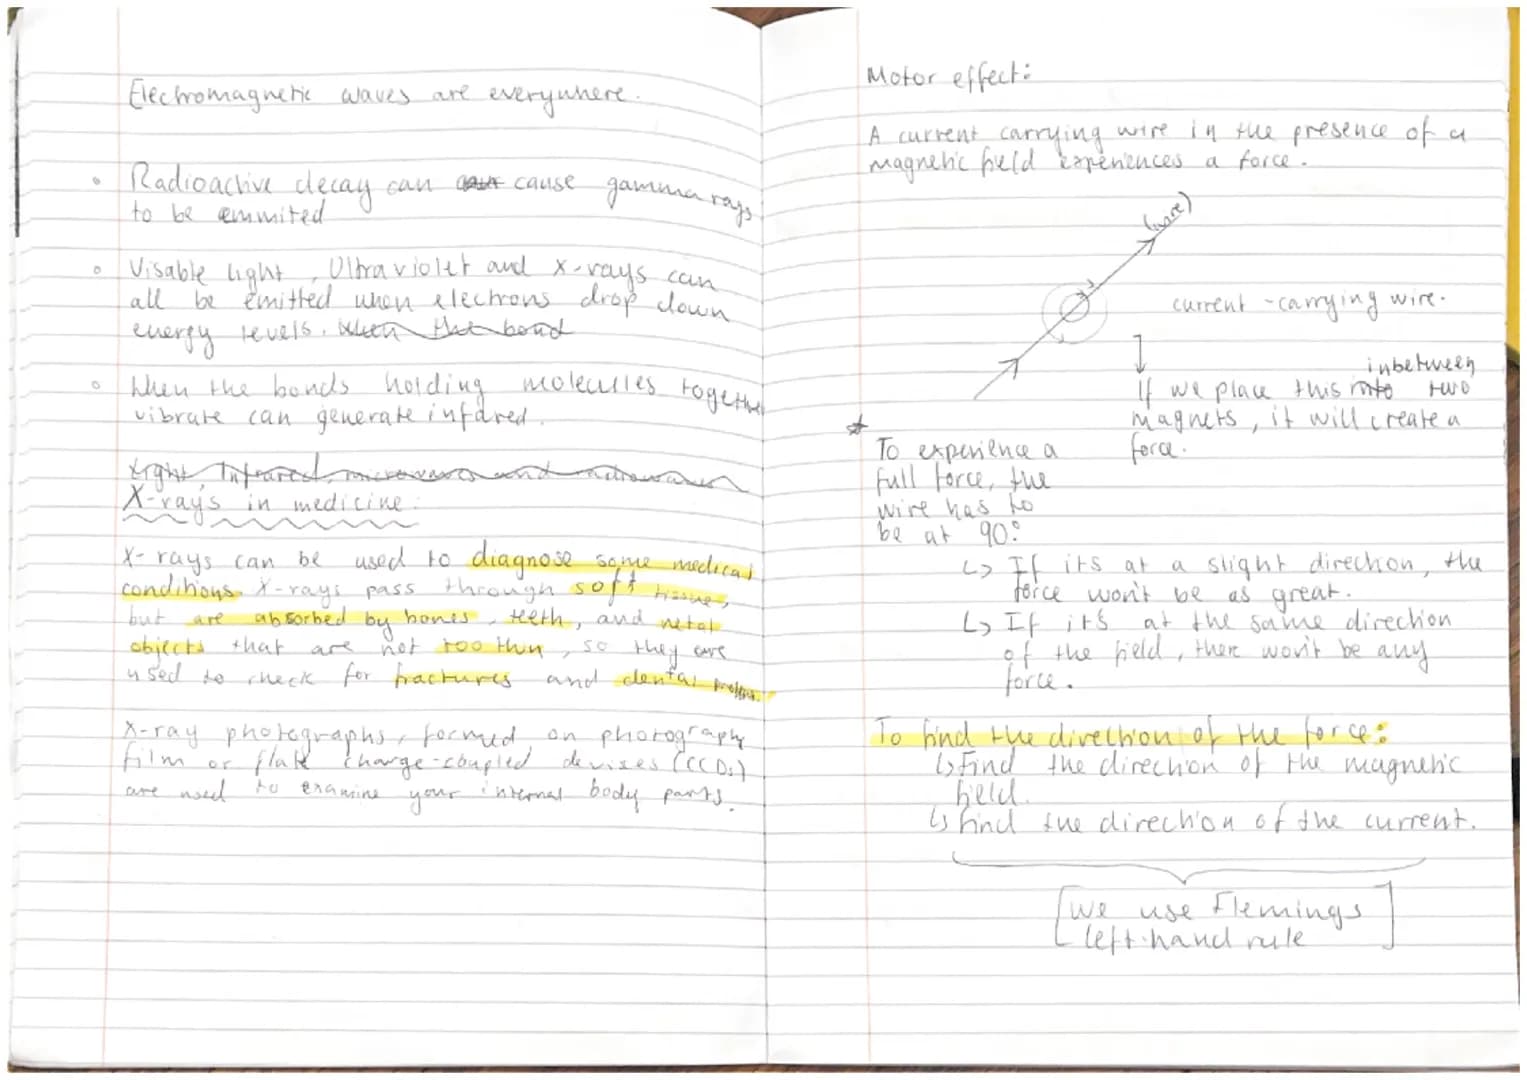 Electromagnetic waves are everywhere.
Radioactive decay can cause gamma rays
to be emmited
Visable light, Ultraviolet and x-rays can
all be emitted when electrons drop down
energy levels. When the bond
When the bonds holding molecules together
vibrate can generate infared.
Light, Infrared, microwaves and radiowaves
X-rays in medicine:
X-rays can be used to diagnose some medical
conditions. X-rays pass through soft tissue,
but are absorbed by bones, teeth, and metal
objects that are not too thin, so they are
used to check for fractures and dental
X-ray photographs, formed on photography
film or flate charge-coupled devises (CCDs)
are used to examine your internal body parts.
Motor effect:
A current carrying wire in the presence of a
magnetic field experiences a force.
(wire)
current-carrying wire.
inbetween
If we place this into two
magnets, it will create a
force.
To experience a
full force, the
wire has to
be at 90°
↳ If its at a slight direction, the
force won't be as great.
↳ If it's at the same direction
of the field, there won't be any
force.
To find the direction of the force:
↳ Find the direction of the magnetic
field.
↳ find the direction of the current.
[We use Flemings
left-hand rule]